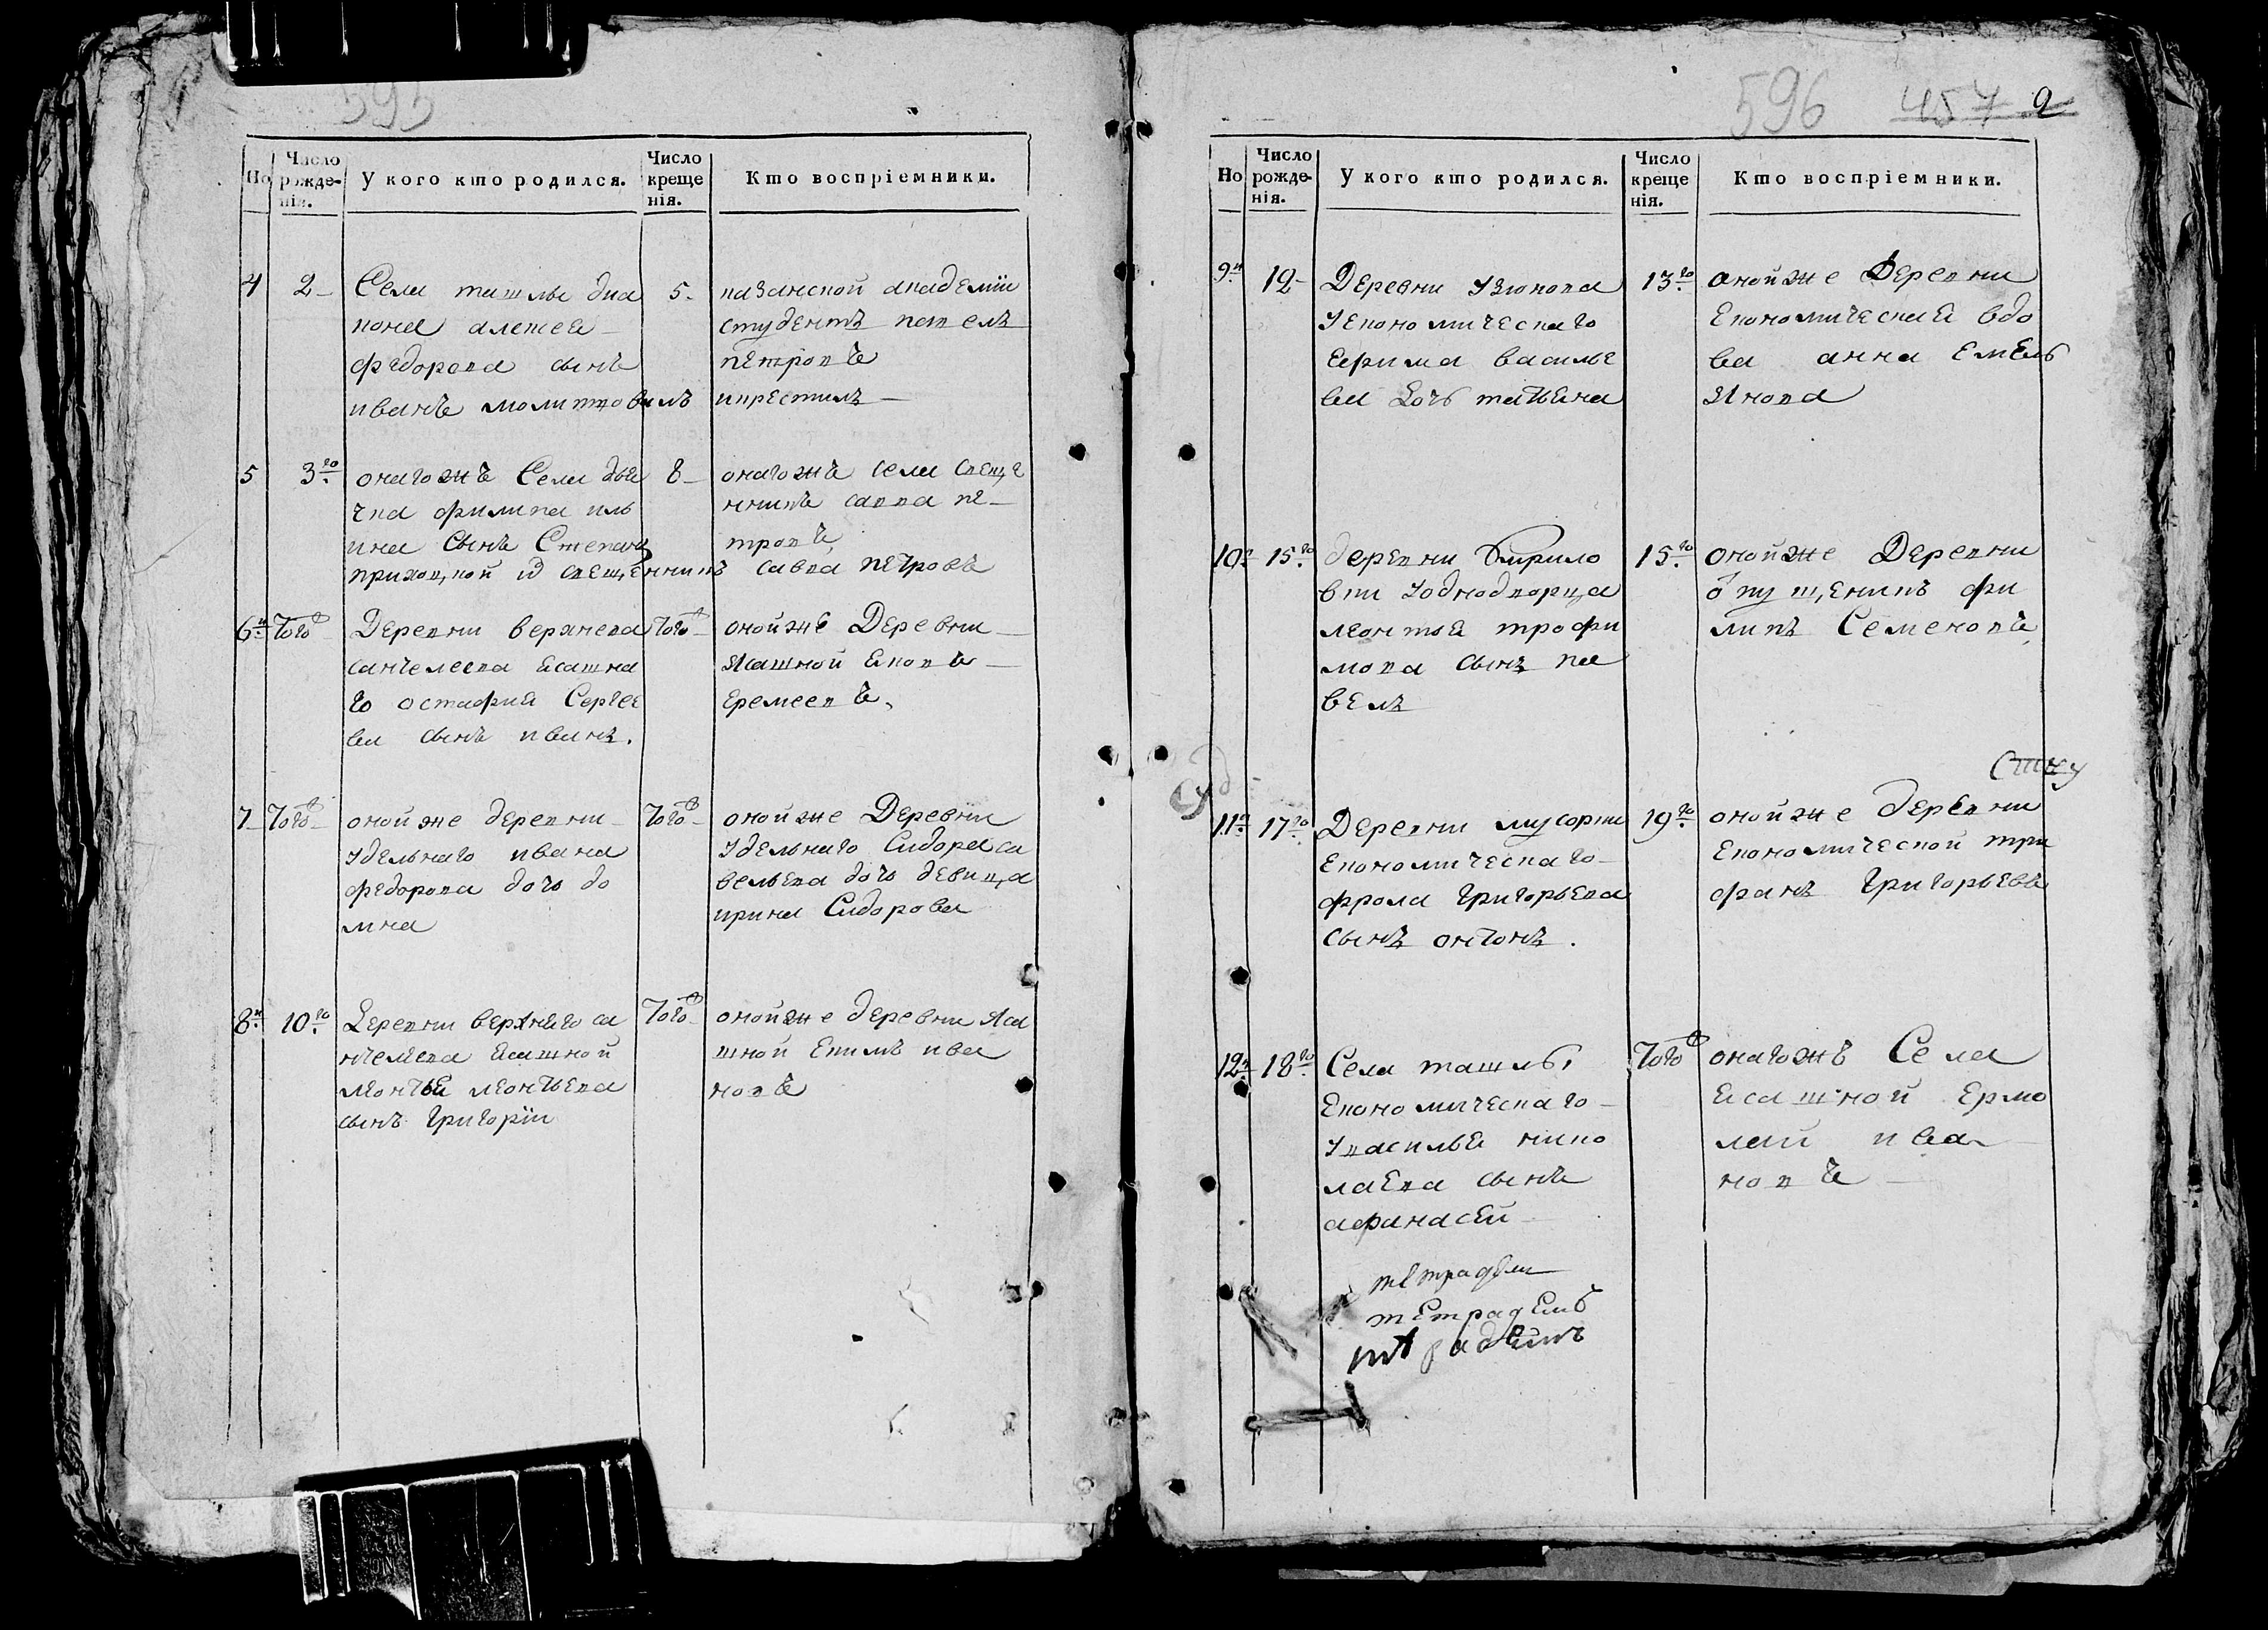 595
Но
Число рожденія.
У кого кто родился.
Число крещенія.
Кто воспріемники.
4 2
Села ташлы дья
кона алексея
федорова сынъ
иванъ молитвовалъ
5
казанской академіи
студентъ павелъ
петровъ
икрестилъ
5 3го
онагожъ Села дья
чка филипа иль
ина Сынъ Степанъ
приход,кой ид свещ,енникъ савва петровъ
8
онагожъ села свещ,е
нникъ савва пе
тровъ
6й Того
Деревни верхнева
санчелеева ясашна
го остафия Сергее
ва сынъ иванъ.
Того
онойже Деревни
Ясашной яковъ
еремеевъ
7 Того
онойже деревни
Удельнаго ивана
федорова дочь до
мна
Того
онойже Деревни
Удельнаго Сидора са
вельева дочь девиц,а
ирина Сидорова
8й 10го
Деревни верхнего са
нчелеева ясашной
леонтья леонтьева
сынъ григорiи
Того
онойже деревни Яса
шной Екимъ ива
новъ
596 457 9
Но
Число рожденія.
У кого кто родился.
Число крещенія.
Кто воспріемники.
9й 12
Деревни Узюкова
Уекономическаго
Ефима василье
ва Дочь татьяна
13го
онойже Деревни
Економическая вдо
ва анна Емель
Янова
10й 15го
деревни Кирило
вки Уоднодворца
леонтья трофи
мова сынъ па
велъ
15го
онойже Деревни
опущ,еникъ фи
липъ Семеновъ
11й 17го
Деревни мусорки
Економическаго
фрола григорьева
сынъ онтонъ.
19го
онойже деревни
Економической три
фанъ григорьевъ
12й 18го
Села ташлы
Економическаго
Увасилья нико
лаева сынъ
афанасей
Того
онагожъ Села
ясашной Ермо
лай ива
новъ
тетрадьи
тетрадень